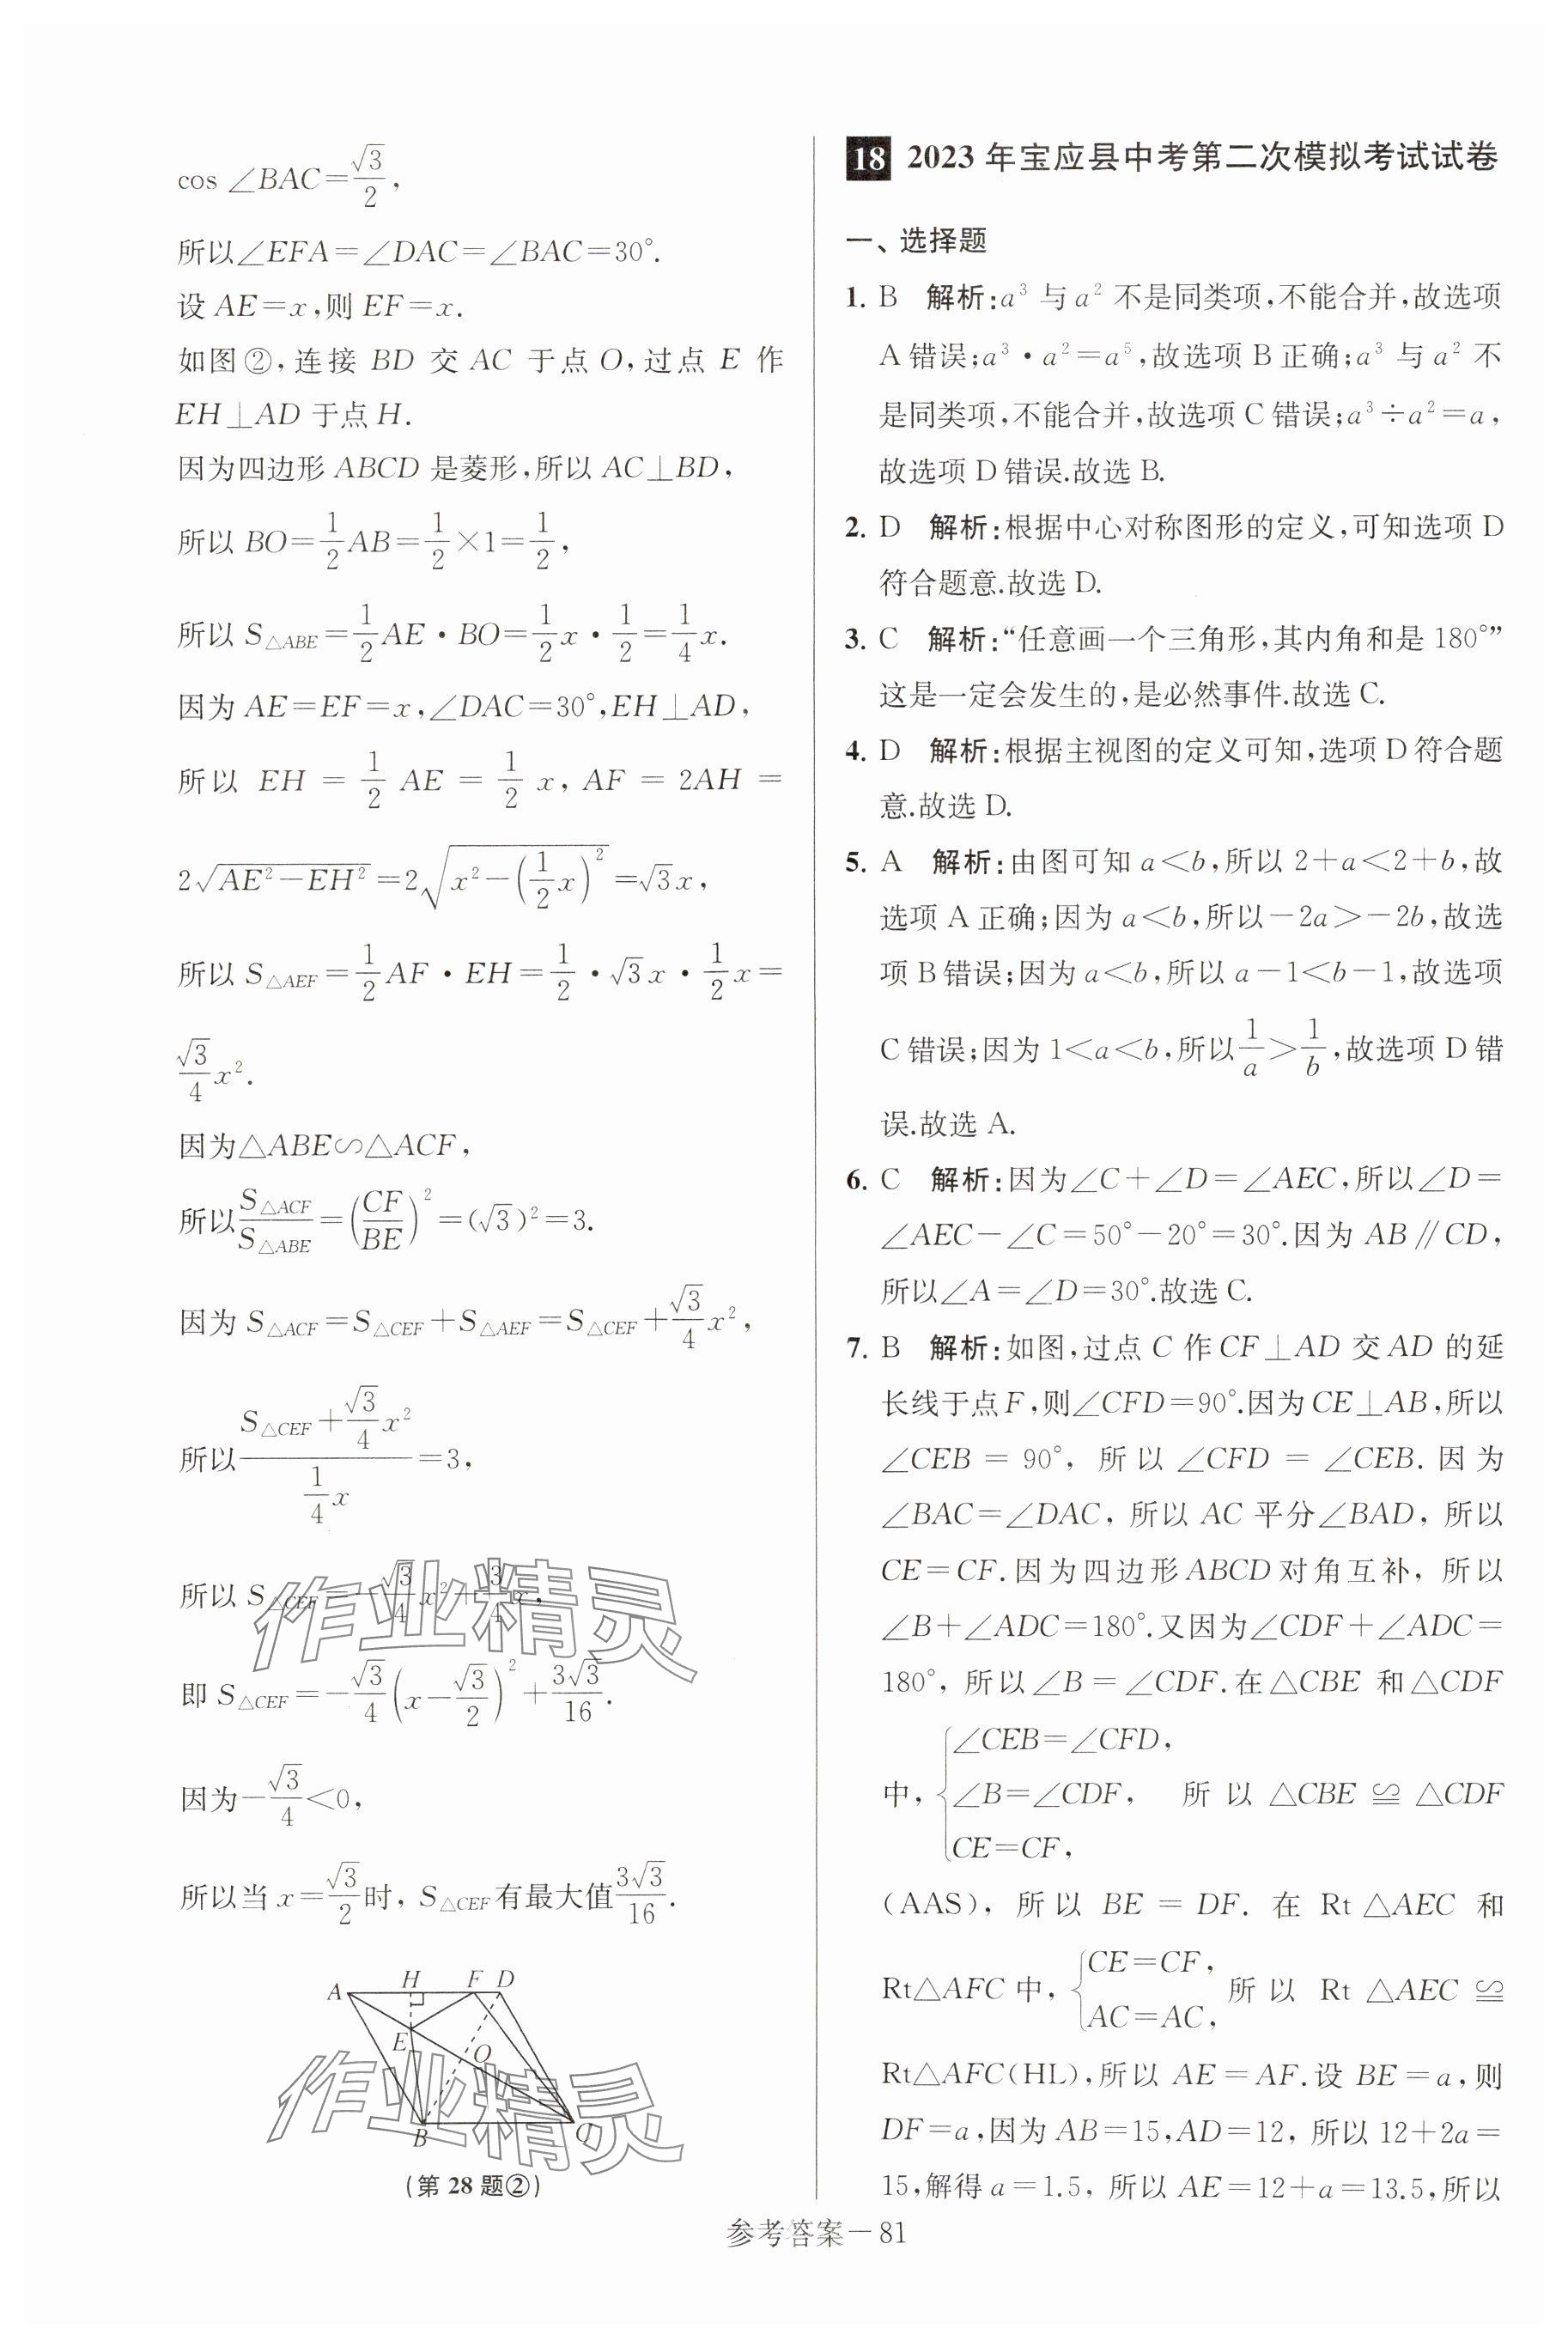 cos ∠BAC=√3/2,
所以∠EFA=∠DAC=∠BAC=30°.
设 AE=x,则 EF=x.
如图②,连接 BD 交 AC 于点 O,过点 E 作
EH⊥AD 于点 H.
因为四边形 ABCD 是菱形,所以 AC⊥BD,
所以 BO=1/2AB=1/2×1=1/2,
所以 S△ABE=1/2AE·BO=1/2x·1/2=1/4x.
因为 AE=EF=x,∠DAC=30°,EH⊥AD,
所以 EH = 1/2 AE = 1/2 x, AF = 2AH =
2√(AE²-EH²)=2√(x²-(1/2x)²)=√3x,
所以 S△AEF=1/2AF·EH=1/2·√3x·1/2x=
√3/4x².
因为△ABE∽△ACF,
所以S△ACF/S△ABE=(CF/BE)²=(√3)²=3.
因为 S△ACF=S△CEF+S△AEF=S△CEF+√3/4x²,
所以(S△CEF+√3/4x²)/(1/4x)=3,
所以 S△CEF=-√3/4x²+3/4x,
即 S△CEF=-√3/4(x-√3/2)²+3√3/16.
因为-√3/4<0,
所以当 x=√3/2时, S△CEF有最大值3√3/16.
A H F D
E
O
B C
(第 28 题②)
18 2023 年宝应县中考第二次模拟考试试卷
一、选择题
1. B 解析:a³ 与 a² 不是同类项,不能合并,故选项
A 错误;a³·a²=a⁵,故选项 B 正确;a³ 与 a² 不
是同类项,不能合并,故选项 C 错误;a³÷a²=a,
故选项 D 错误.故选 B.
2. D 解析:根据中心对称图形的定义,可知选项 D
符合题意.故选 D.
3. C 解析:“任意画一个三角形,其内角和是 180°”
这是一定会发生的,是必然事件.故选 C.
4. D 解析:根据主视图的定义可知,选项 D 符合题
意.故选 D.
5. A 解析:由图可知 a<b,所以 2+a<2+b,故
选项 A 正确;因为 a<b,所以-2a>-2b,故选
项 B 错误;因为 a<b,所以 a-1<b-1,故选项
C 错误;因为 1<a<b,所以1/a>1/b,故选项 D 错
误.故选 A.
6. C 解析:因为∠C+∠D=∠AEC,所以∠D=
∠AEC-∠C=50°-20°=30°.因为 AB∥CD,
所以∠A=∠D=30°.故选 C.
7. B 解析:如图,过点 C 作 CF⊥AD 交 AD 的延
长线于点 F,则∠CFD=90°.因为 CE⊥AB,所以
∠CEB = 90°, 所以 ∠CFD = ∠CEB. 因为
∠BAC=∠DAC, 所以 AC 平分∠BAD, 所以
CE=CF.因为四边形 ABCD 对角互补, 所以
∠B+∠ADC=180°.又因为∠CDF+∠ADC=
180°, 所以∠B=∠CDF.在△CBE 和△CDF
中,{∠CEB=∠CFD, ∠B=∠CDF, CE=CF, 所以 △CBE ≌ △CDF
(AAS), 所以 BE = DF. 在 Rt △AEC 和
Rt△AFC 中,{CE=CF, AC=AC, 所以 Rt △AEC ≌
Rt△AFC(HL),所以 AE=AF.设 BE=a,则
DF=a,因为 AB=15,AD=12, 所以 12+2a=
15,解得 a=1.5, 所以 AE=12+a=13.5,所以
参考答案-81
作业精灵
作业精灵